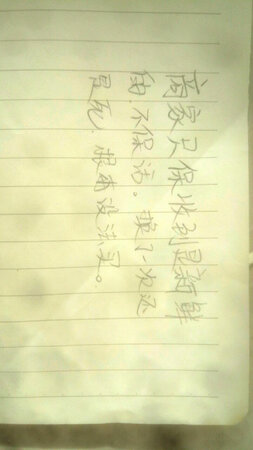 商家只保收到是新鲜
的，不保活。换了一次还
是死，根本没法买。